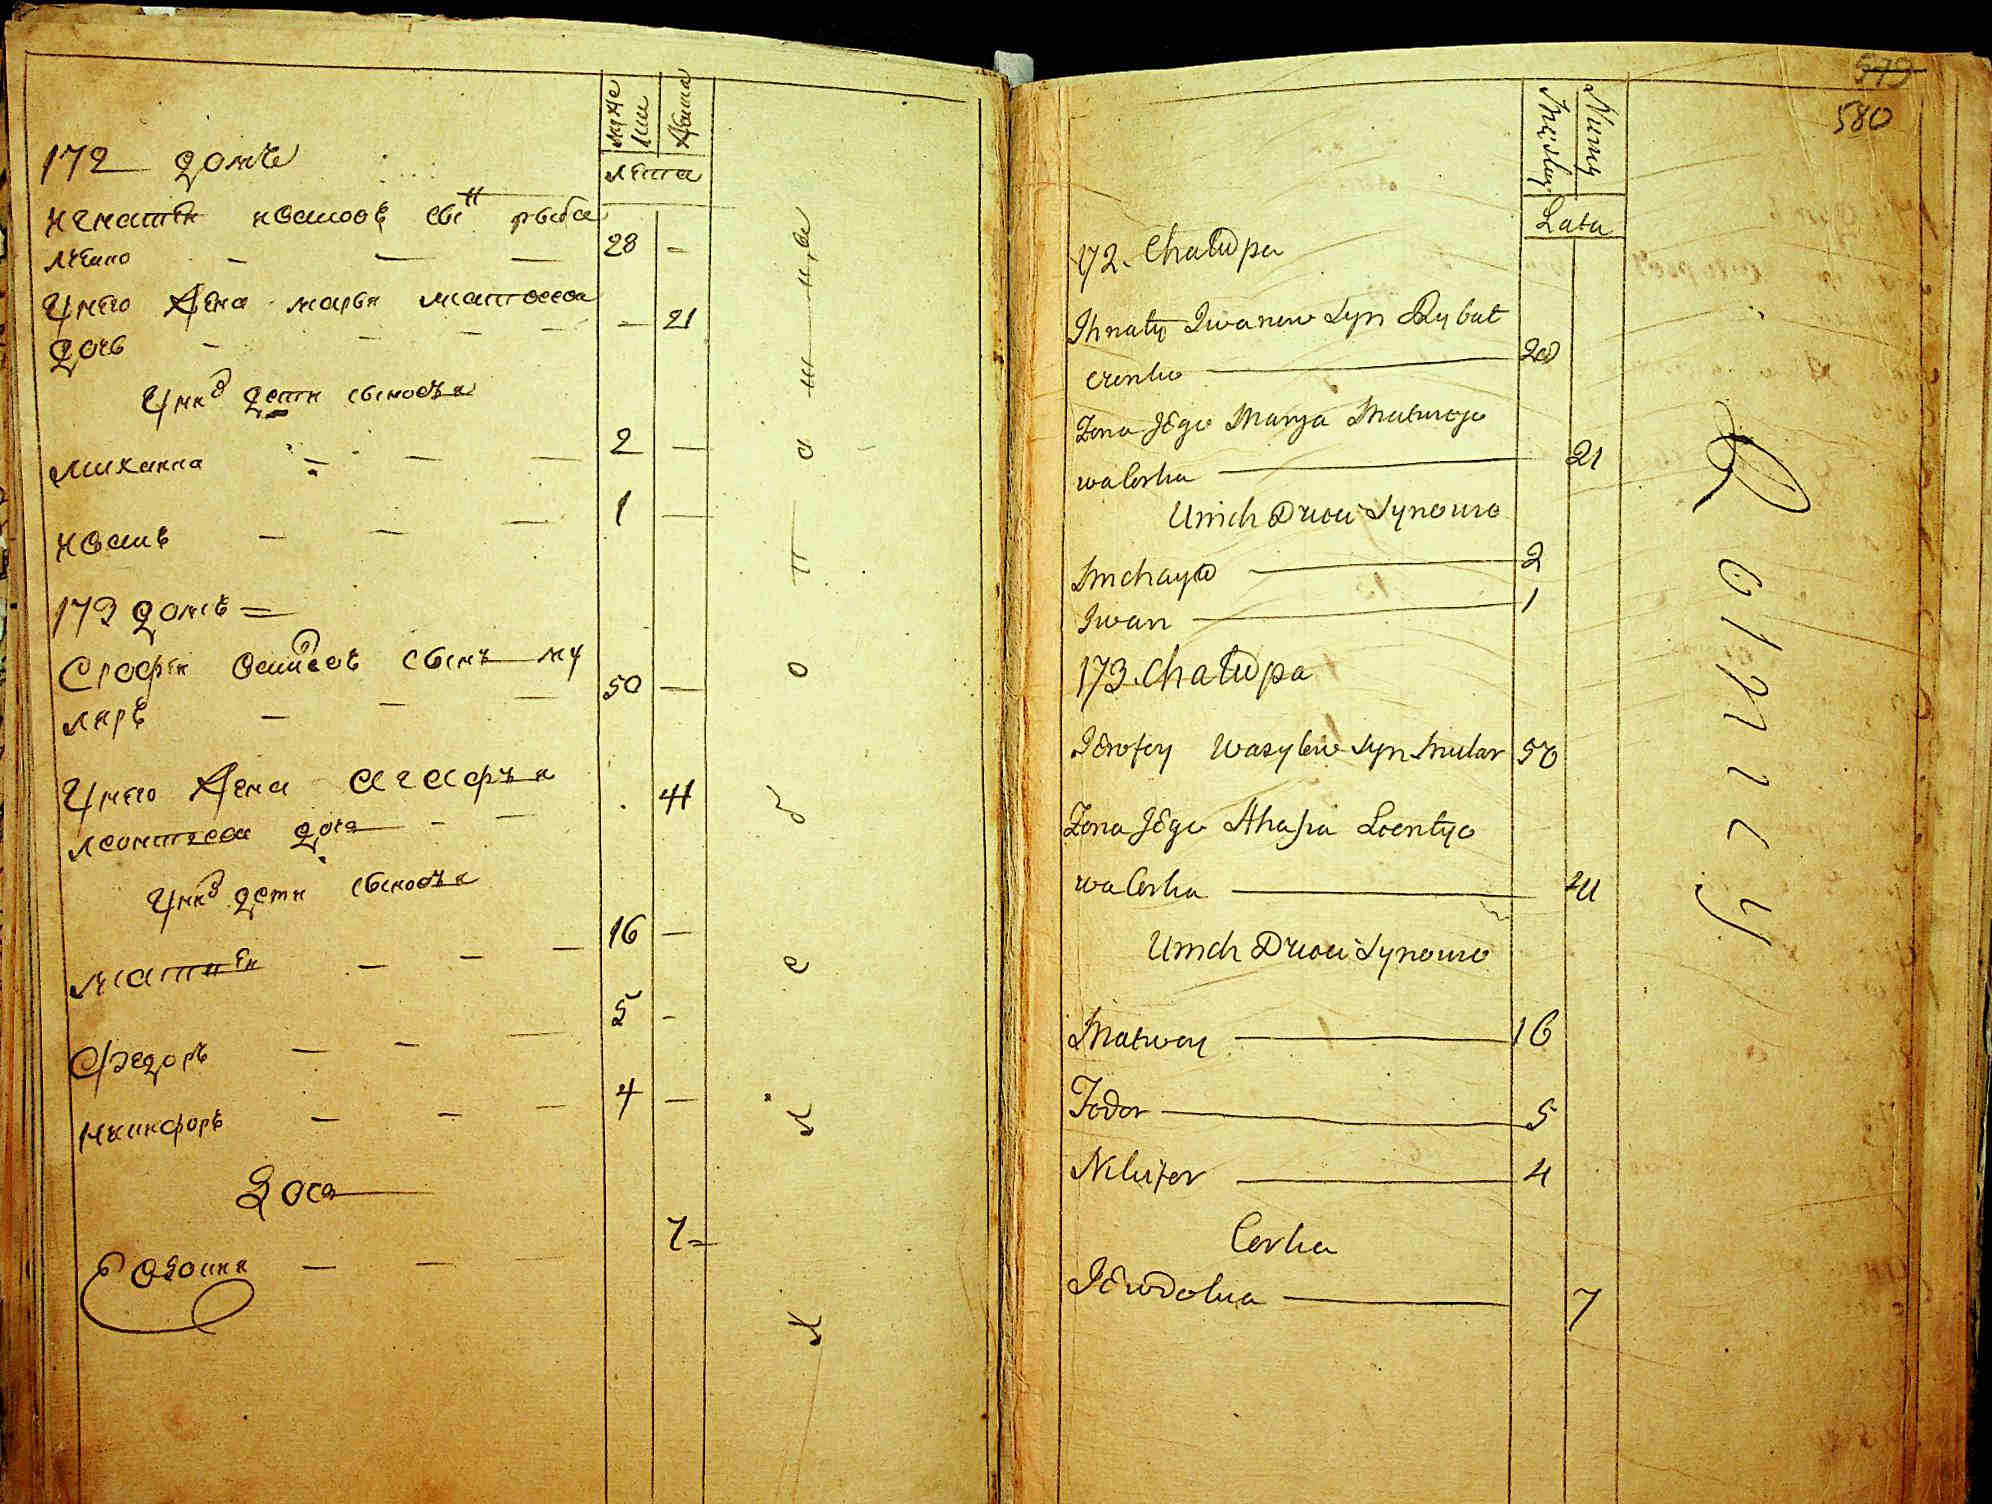 муже
ши
жена
лета
172 домъ
игнатѣи ивановъ сынъ рыба
лченко 28 —
У него жена марья матвеева
дочь — 21
У них дети сыновья
михаила 2 —
иванъ 1 —
173 домъ
Ерофѣи васильевъ сынъ му
ляръ 50 —
У него жена агафья
леонтьева дочь 41
У них дети сыновья
матвѣи 16 —
Федоръ 5 —
никифоръ 4 —
Дочь
Евдокия 7
хлебопашцы
579
580
Męzky
Numy
Lata
172. Chałupa
Ihnaty Iwanow Syn Rybal
czenko 28
Zona Jego Marya Matweje
wa Corka 21
U nich Dzieci Synowie
Michayło 2
Iwan 1
173. Chałupa
Jerofey Wasylew Syn Mular 50
Zona Jego Ahafia Leontye
wa Corka 41
U nich Dzieci Synowie
Matwey 16
Fedor 5
Nikifor 4
Corka
Jewdokia 7
Rolnicy